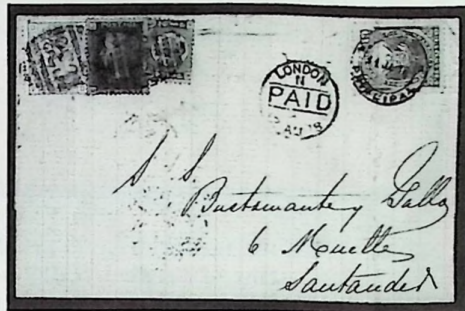 LONDON
N
PAID
AU 18
PRINCIPAL
S. S.
Bustamante y Gallo
6 Muelle
Santander